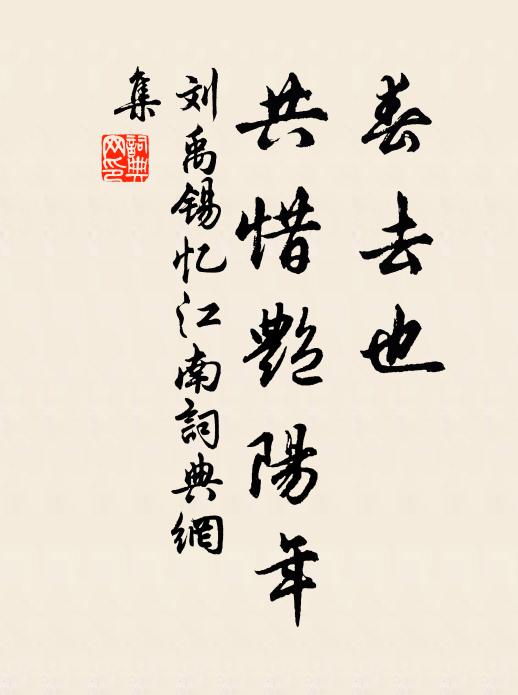 春去也
共惜艷陽年
刘禹锡忆江南詞典網
集
詞典
网印